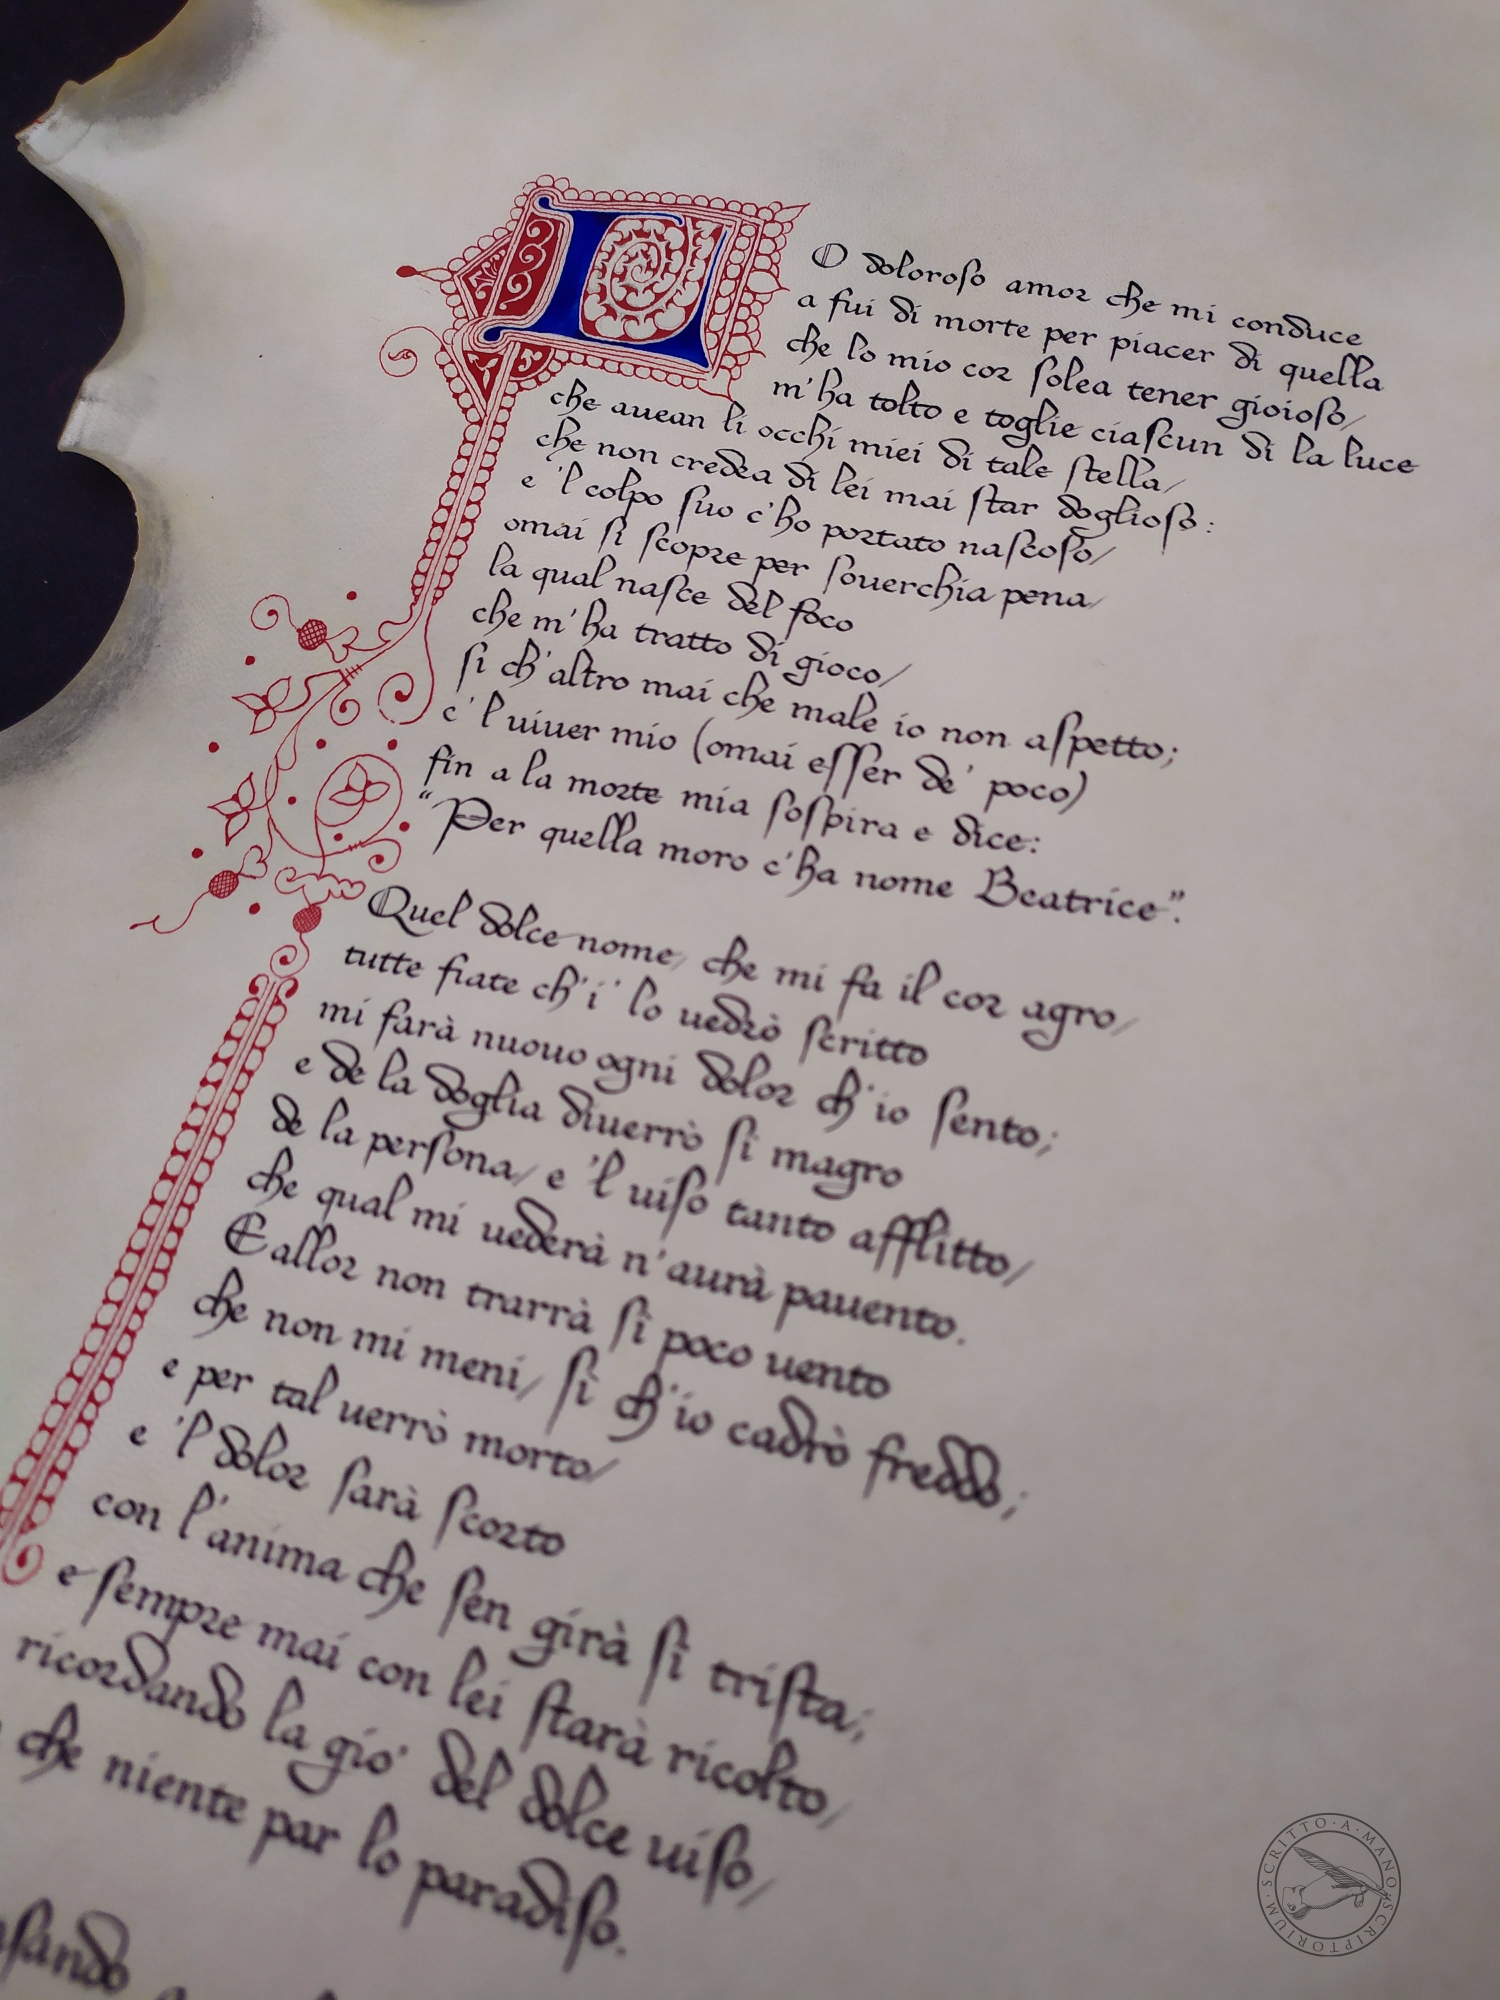 LO doloroso amor che mi conduce
a fui di morte per piacer di quella
che lo mio cor solea tener gioioso/
m'ha tolto e toglie ciascun di la luce
che auean li occhi miei di tale stella/
che non credea di lei mai star doglioso:
e 'l colpo suo c'ho portato nascoso/
omai si scopre per souerchia pena/
la qual nasce del foco
che m'ha tratto di gioco/
si ch'altro mai che male io non aspetto;
e 'l uiuer mio (omai esser de' poco)
fin a la morte mia sospira e dice:
“Per quella moro c'ha nome Beatrice”.
Quel dolce nome/ che mi fa il cor agro/
tutte fiate ch'i' lo uedrò scritto
mi farà nuouo ogni dolor ch'io sento;
e de la doglia diuerrò sì magro
de la persona/ e 'l uiso tanto afflitto/
che qual mi uederà n'aurà pauento.
E allor non trarrà sì poco uento
che non mi meni/ sì ch'io cadrò freddo;
e per tal uerrò morto/
e 'l dolor sarà scorto
con l'anima che sen girà sì trista;
e sempre mai con lei starà ricolto/
ricordando la gio' del dolce uiso/
che niente par lo paradiso.
SCRITTO·A·MANO·SCRIPTORIUM